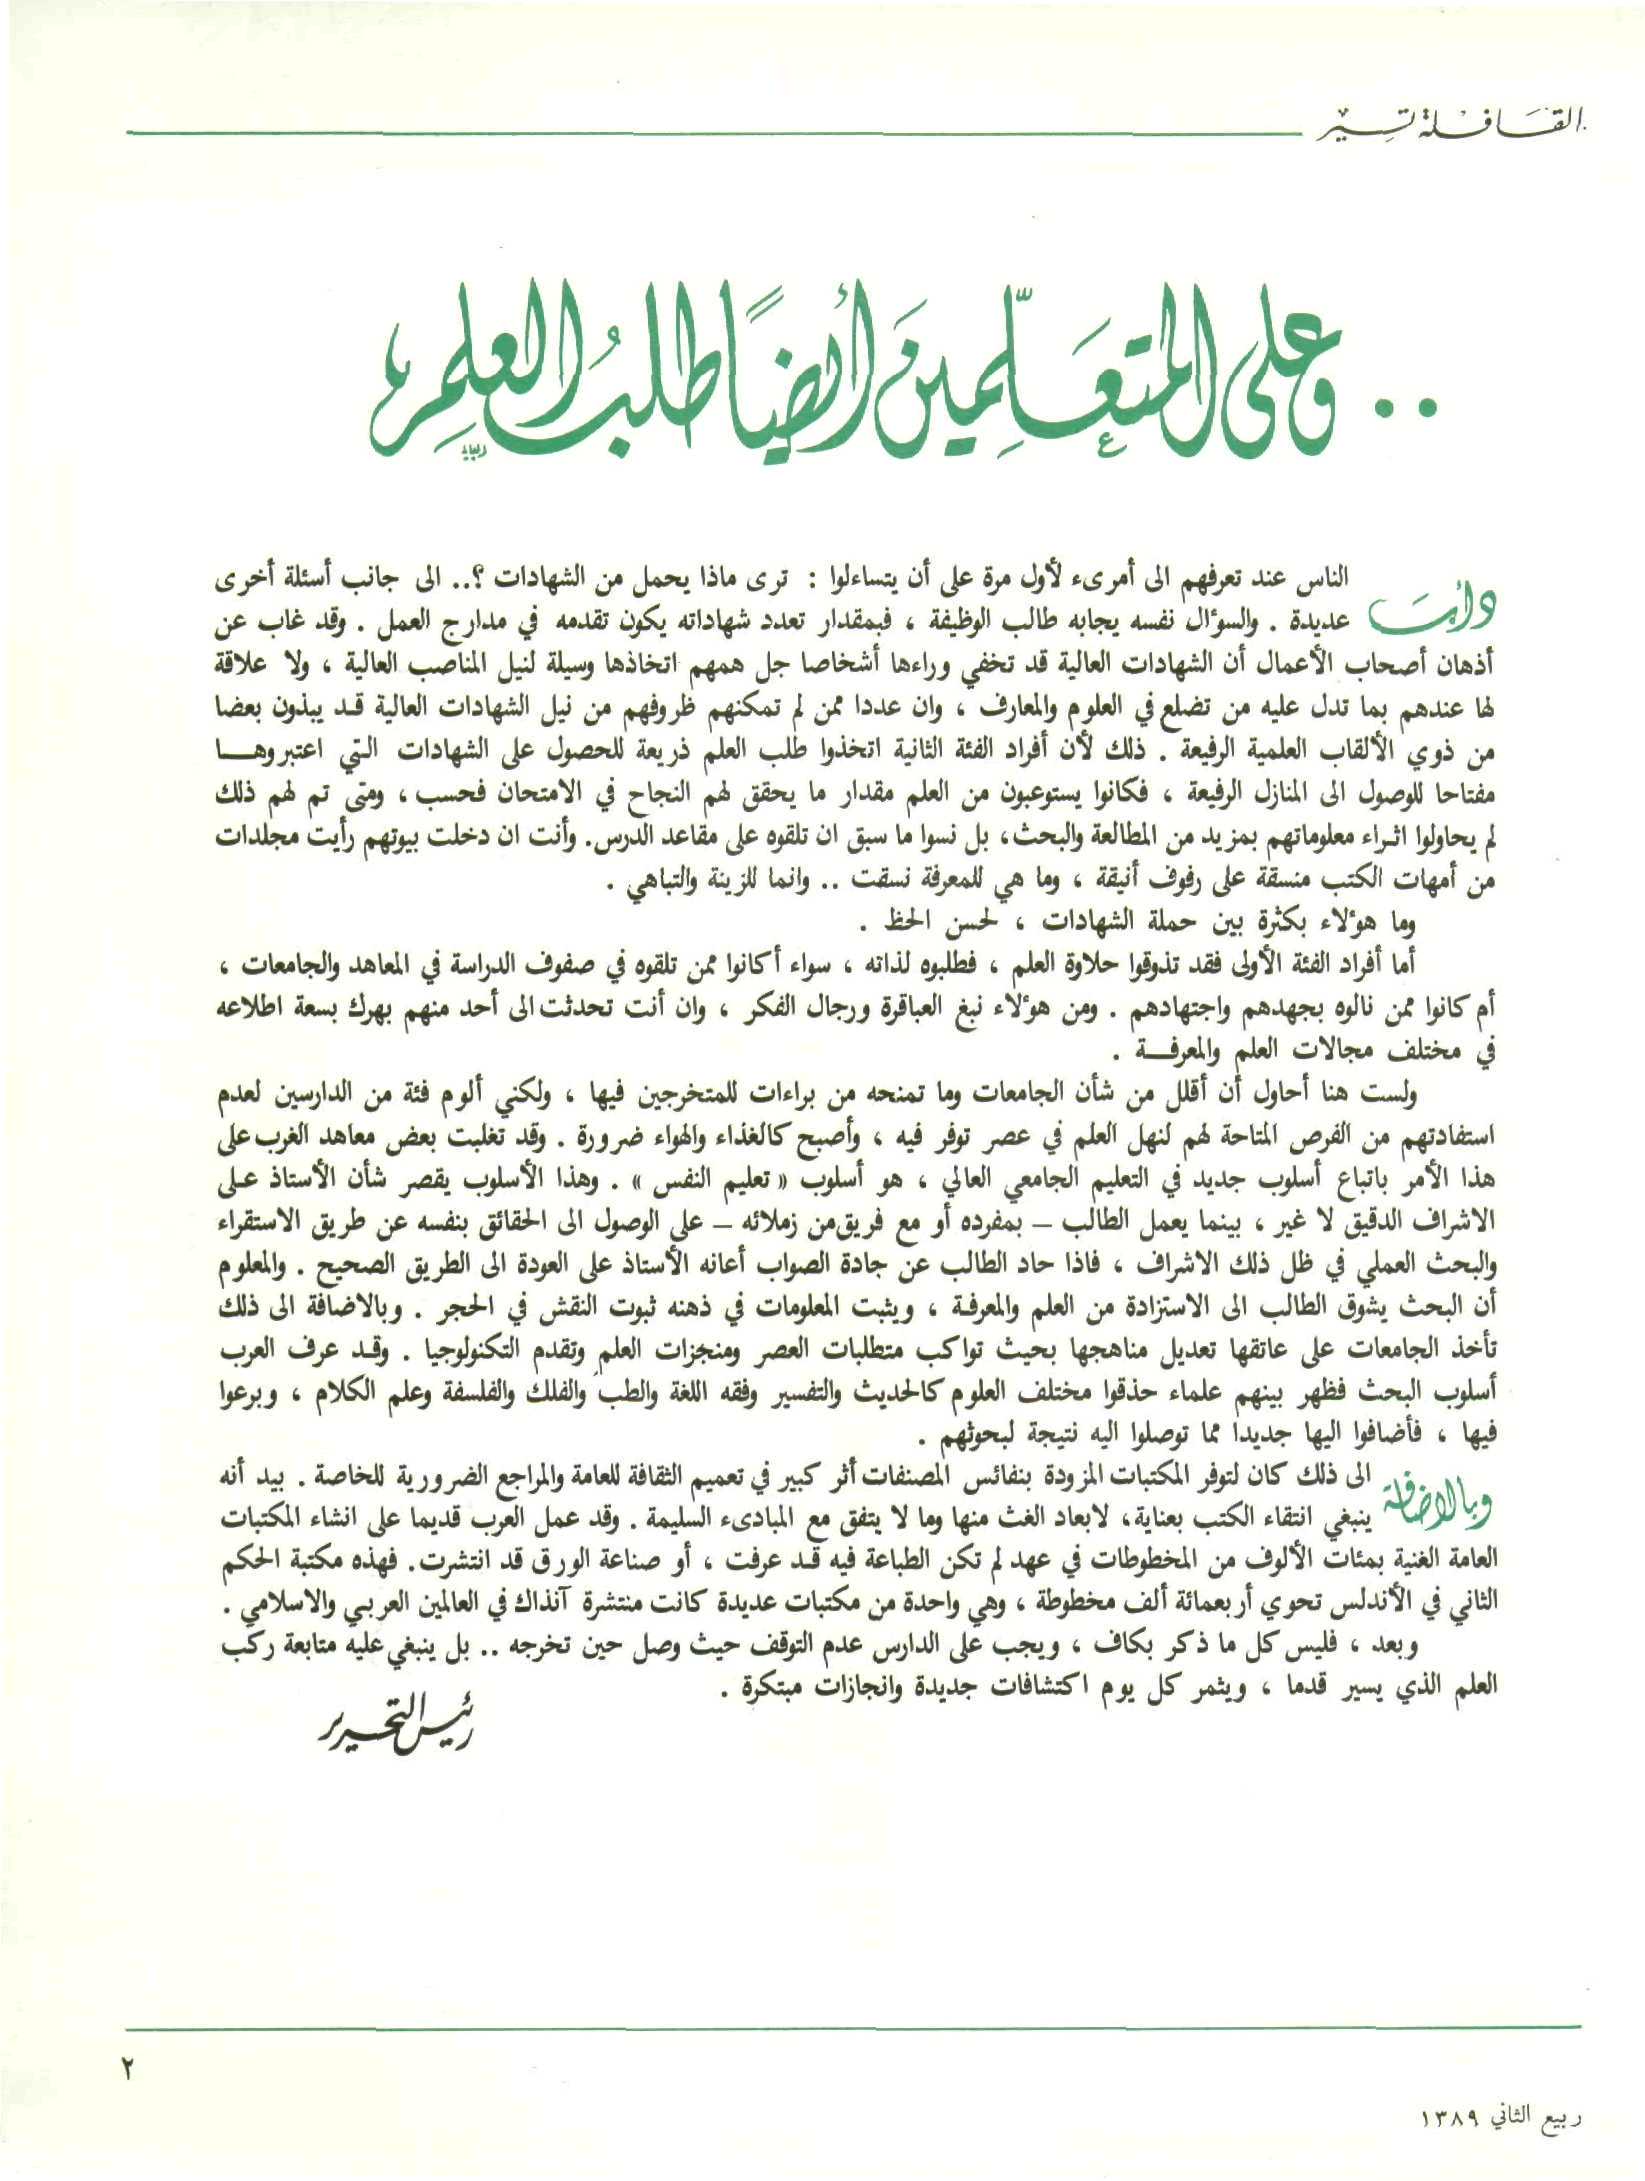 القافلة تسير
.. وعلى المتعلّمين أيضًا طلب العلم
دأبت الناس عند تعرفهم الى أمرىء لأول مرة على أن يتساءلوا : ترى ماذا يحمل من الشهادات ؟.. الى جانب أسئلة أخرى
عديدة . والسؤال نفسه يجابه طالب الوظيفة ، فبمقدار تعدد شهاداته يكون تقدمه في مدارج العمل . وقد غاب عن
أذهان أصحاب الأعمال أن الشهادات العالية قد تخفي وراءها أشخاصا جل همهم اتخاذها وسيلة لنيل المناصب العالية ، ولا علاقة
لها عندهم بما تدل عليه من تضلع في العلوم والمعارف ، وان عددا ممن لم تمكنهم ظروفهم من نيل الشهادات العالية قد يبذون بعضا
من ذوي الألقاب العلمية الرفيعة . ذلك لأن أفراد الفئة الثانية اتخذوا طلب العلم ذريعة للحصول على الشهادات التي اعتبروها
مفتاحا للوصول الى المنازل الرفيعة ، فكانوا يستوعبون من العلم مقدار ما يحقق لهم النجاح في الامتحان فحسب ، ومتى تم لهم ذلك
لم يحاولوا اثراء معلوماتهم بمزيد من المطالعة والبحث، بل نسوا ما سبق ان تلقوه على مقاعد الدرس. وأنت ان دخلت بيوتهم رأيت مجلدات
من أمهات الكتب منسقة على رفوف أنيقة ، وما هي للمعرفة نسقت .. وانما للزينة والتباهي .
وما هؤلاء بكثرة بين حملة الشهادات ، لحسن الحظ .
أما أفراد الفئة الأولى فقد تذوقوا حلاوة العلم ، فطلبوه لذاته ، سواء أكانوا ممن تلقوه في صفوف الدراسة في المعاهد والجامعات ،
أم كانوا ممن نالوه بجهدهم واجتهادهم . ومن هؤلاء نبغ العباقرة ورجال الفكر ، وان أنت تحدثت الى أحد منهم بهرك بسعة اطلاعه
في مختلف مجالات العلم والمعرفة .
ولست هنا أحاول أن أقلل من شأن الجامعات وما تمنحه من براءات للمتخرجين فيها ، ولكني ألوم فئة من الدارسين لعدم
استفادتهم من الفرص المتاحة لهم لنهل العلم في عصر توفر فيه ، وأصبح كالغذاء والهواء ضرورة . وقد تغلبت بعض معاهد الغرب على
هذا الأمر باتباع أسلوب جديد في التعليم الجامعي العالي ، هو أسلوب « تعليم النفس » . وهذا الأسلوب يقصر شأن الأستاذ على
الاشراف الدقيق لا غير ، بينما يعمل الطالب – بمفرده أو مع فريق من زملائه – على الوصول الى الحقائق بنفسه عن طريق الاستقراء
والبحث العملي في ظل ذلك الاشراف ، فاذا حاد الطالب عن جادة الصواب أعانه الأستاذ على العودة الى الطريق الصحيح . والمعلوم
أن البحث يشوق الطالب الى الاستزادة من العلم والمعرفة ، ويثبت المعلومات في ذهنه ثبوت النقش في الحجر . وبالاضافة الى ذلك
تأخذ الجامعات على عاتقها تعديل مناهجها بحيث تواكب متطلبات العصر ومنجزات العلم وتقدم التكنولوجيا . وقد عرف العرب
أسلوب البحث فظهر بينهم علماء حذقوا مختلف العلوم كالحديث والتفسير وفقه اللغة والطب والفلك والفلسفة وعلم الكلام ، وبرعوا
فيها ، فأضافوا اليها جديدا مما توصلوا اليه نتيجة لبحوثهم .
وبالاضافة الى ذلك كان لتوفر المكتبات المزودة بنفائس المصنفات أثر كبير في تعميم الثقافة للعامة والمراجع الضرورية للخاصة . بيد أنه
ينبغي انتقاء الكتب بعناية، لابعاد الغث منها وما لا يتفق مع المبادىء السليمة . وقد عمل العرب قديما على انشاء المكتبات
العامة الغنية بمئات الألوف من المخطوطات في عهد لم تكن الطباعة فيه قد عرفت ، أو صناعة الورق قد انتشرت. فهذه مكتبة الحكم
الثاني في الأندلس تحوي أربعمائة ألف مخطوطة ، وهي واحدة من مكتبات عديدة كانت منتشرة آنذاك في العالمين العربي والاسلامي .
وبعد ، فليس كل ما ذكر بكاف ، ويجب على الدارس عدم التوقف حيث وصل حين تخرجه .. بل ينبغي عليه متابعة ركب
العلم الذي يسير قدما ، ويثمر كل يوم اكتشافات جديدة وانجازات مبتكرة .
رئيس التحرير
٢
ربيع الثاني ١٣٨٩